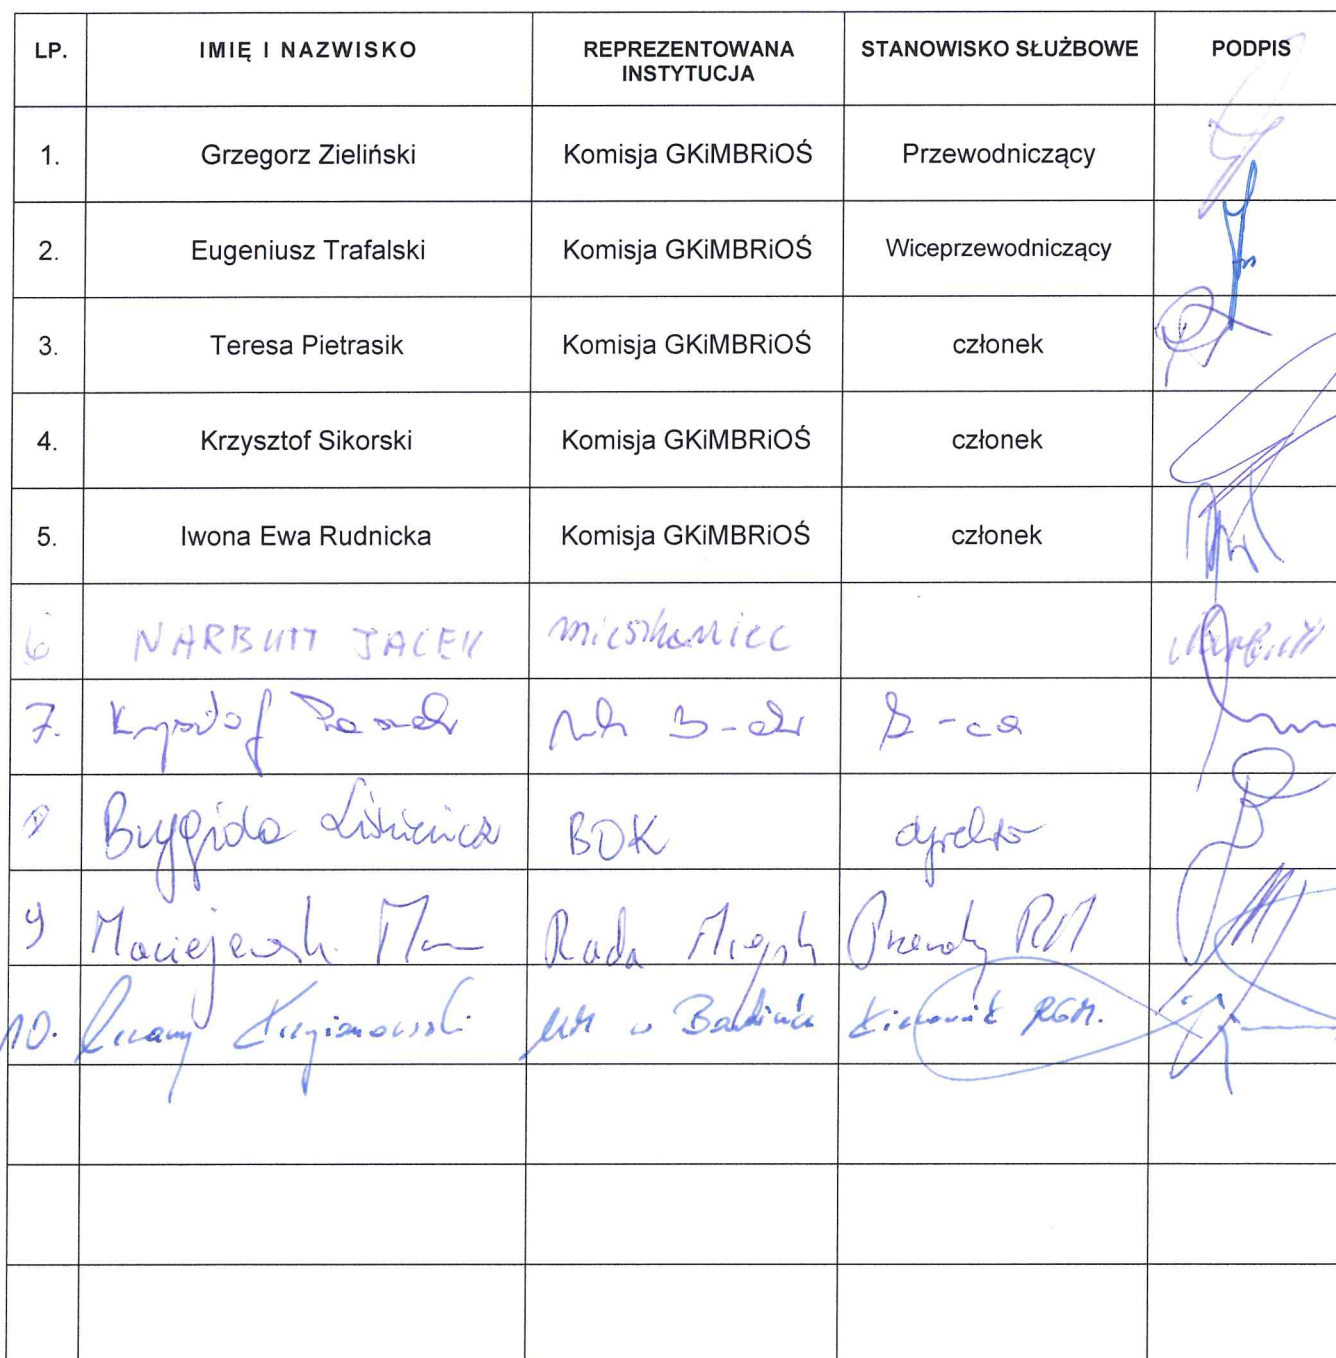 LP. IMIĘ I NAZWISKO REPREZENTOWANA INSTYTUCJA STANOWISKO SŁUŻBOWE PODPIS
1. Grzegorz Zieliński Komisja GKiMBRiOŚ Przewodniczący
2. Eugeniusz Trafalski Komisja GKiMBRiOŚ Wiceprzewodniczący
3. Teresa Pietrasik Komisja GKiMBRiOŚ członek
4. Krzysztof Sikorski Komisja GKiMBRiOŚ członek
5. Iwona Ewa Rudnicka Komisja GKiMBRiOŚ członek
6 NARBUTT JACEK mieszkaniec Narbutt
7. Krzysztof
8 Brygida BOK dyrektor
9 Maciejewski Rada Miejsk RM
10. UM w Kierownik RGM.